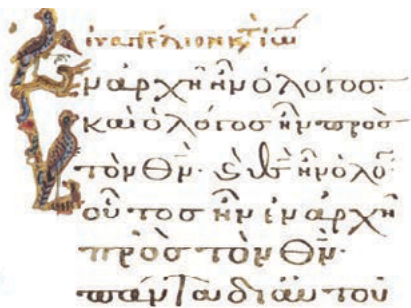 εὐαγγέλιον κτ ἰω
Ἐν ἀρχῆ ἦν ὁ λόγος·
καὶ ὁ λόγος ἦν πρὸς
τὸν θν· καὶ θς ἦν ὁ λο·
οὗτος ἦν ἐν ἀρχῆ
πρὸς τὸν θν·
πάντα δι αὐτοῦ